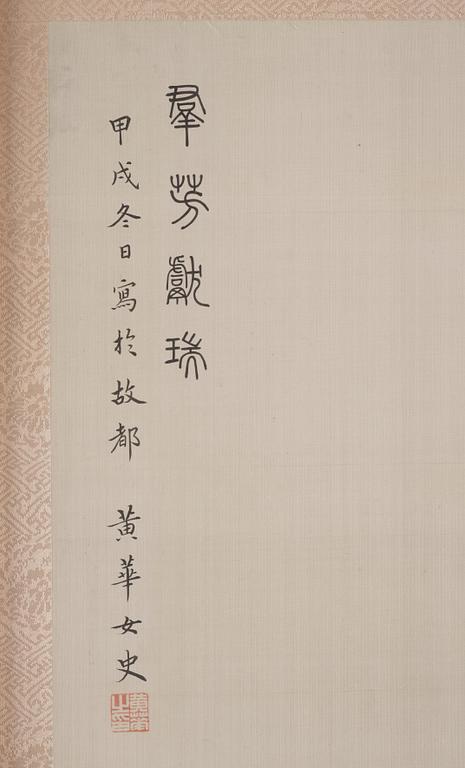 羣芳獻瑞
甲戌冬日寫於故都 黃華女史